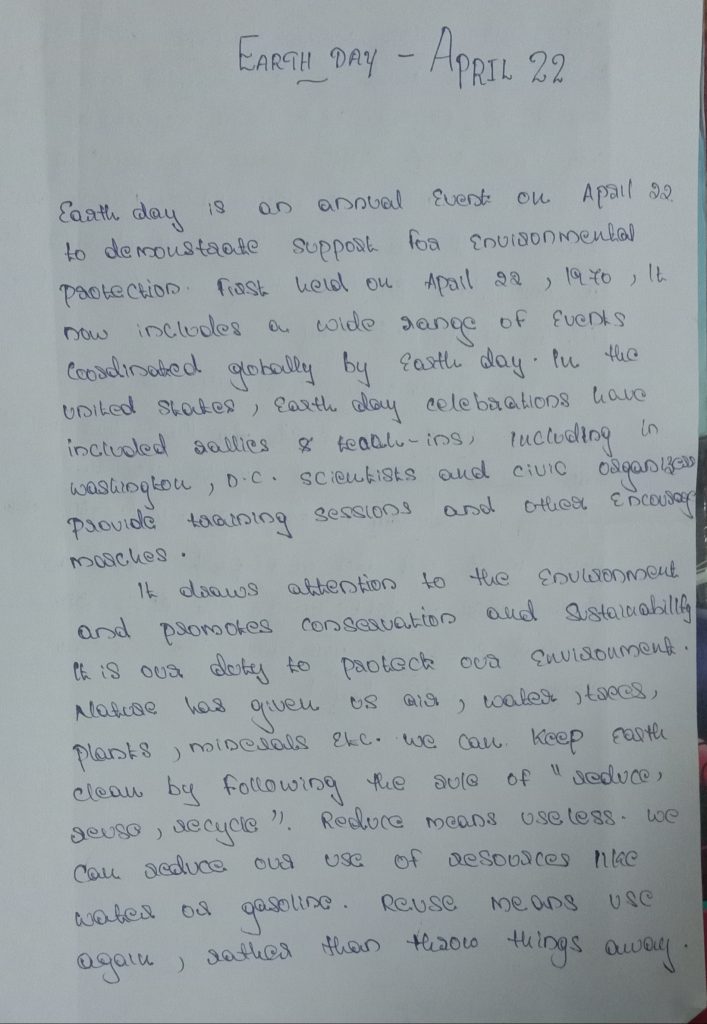 EARTH DAY - APRIL 22
Earth day is an annual Event on April 22
to demonstrate support for Environmental
protection. First held on April 22, 1970, It
now includes a wide range of Events
Coordinated globally by Earth day. In the
United States, Earth day celebrations have
included rallies & teach-ins, including in
washington, D.C. scientists and civic organizers
provide training sessions and other Encourag
marches.
It draws attention to the Environment
and promotes conservation and sustainability
It is our duty to protect our Environment.
Nature has given us air, water, trees,
plants, minerals Etc. we can keep Earth
clean by following the rule of "reduce,
reuse, recycle". Reduce means use less. we
can reduce our use of resources like
water or gasoline. Reuse means use
again, rather than throw things away.